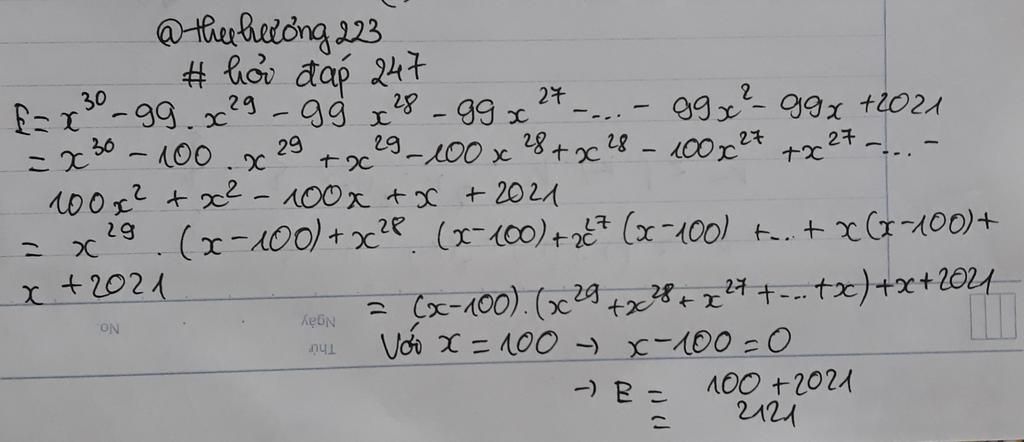 @thuhương223
# hỏi đáp 247
E = x^30 - 99 . x^29 - 99 x^28 - 99 x^27 - ... - 99x^2 - 99x + 2021
= x^30 - 100 . x^29 + x^29 - 100x^28 + x^28 - 100x^27 + x^27 - ... -
100x^2 + x^2 - 100x + x + 2021
= x^29 . (x - 100) + x^28 . (x - 100) + x^27 (x - 100) + ... + x(x - 100) +
x + 2021
= (x - 100) . (x^29 + x^28 + x^27 + ... + x) + x + 2021
No.
Ngày
Thứ
Với x = 100 → x - 100 = 0
→ E = 100 + 2021
= 2121